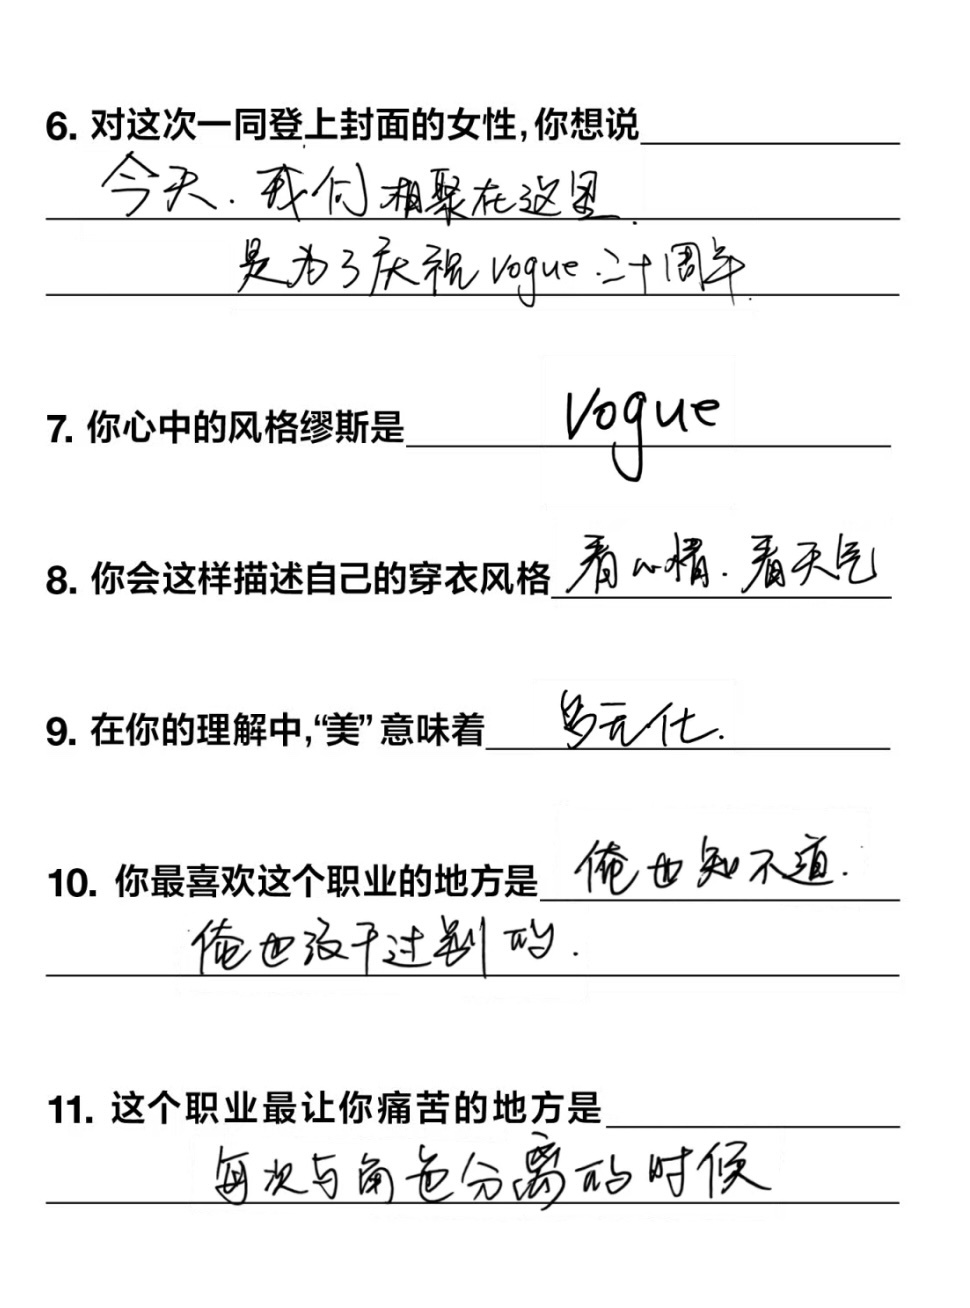 6. 对这次一同登上封面的女性,你想说
今天.我们相聚在这里.
是为了庆祝Vogue.二十周年.
7. 你心中的风格缪斯是 Vogue
8. 你会这样描述自己的穿衣风格 看心情.看天气
9. 在你的理解中,“美”意味着 多元化.
10. 你最喜欢这个职业的地方是 俺也知不道.
俺也没干过别的.
11. 这个职业最让你痛苦的地方是
每次与角色分离的时候